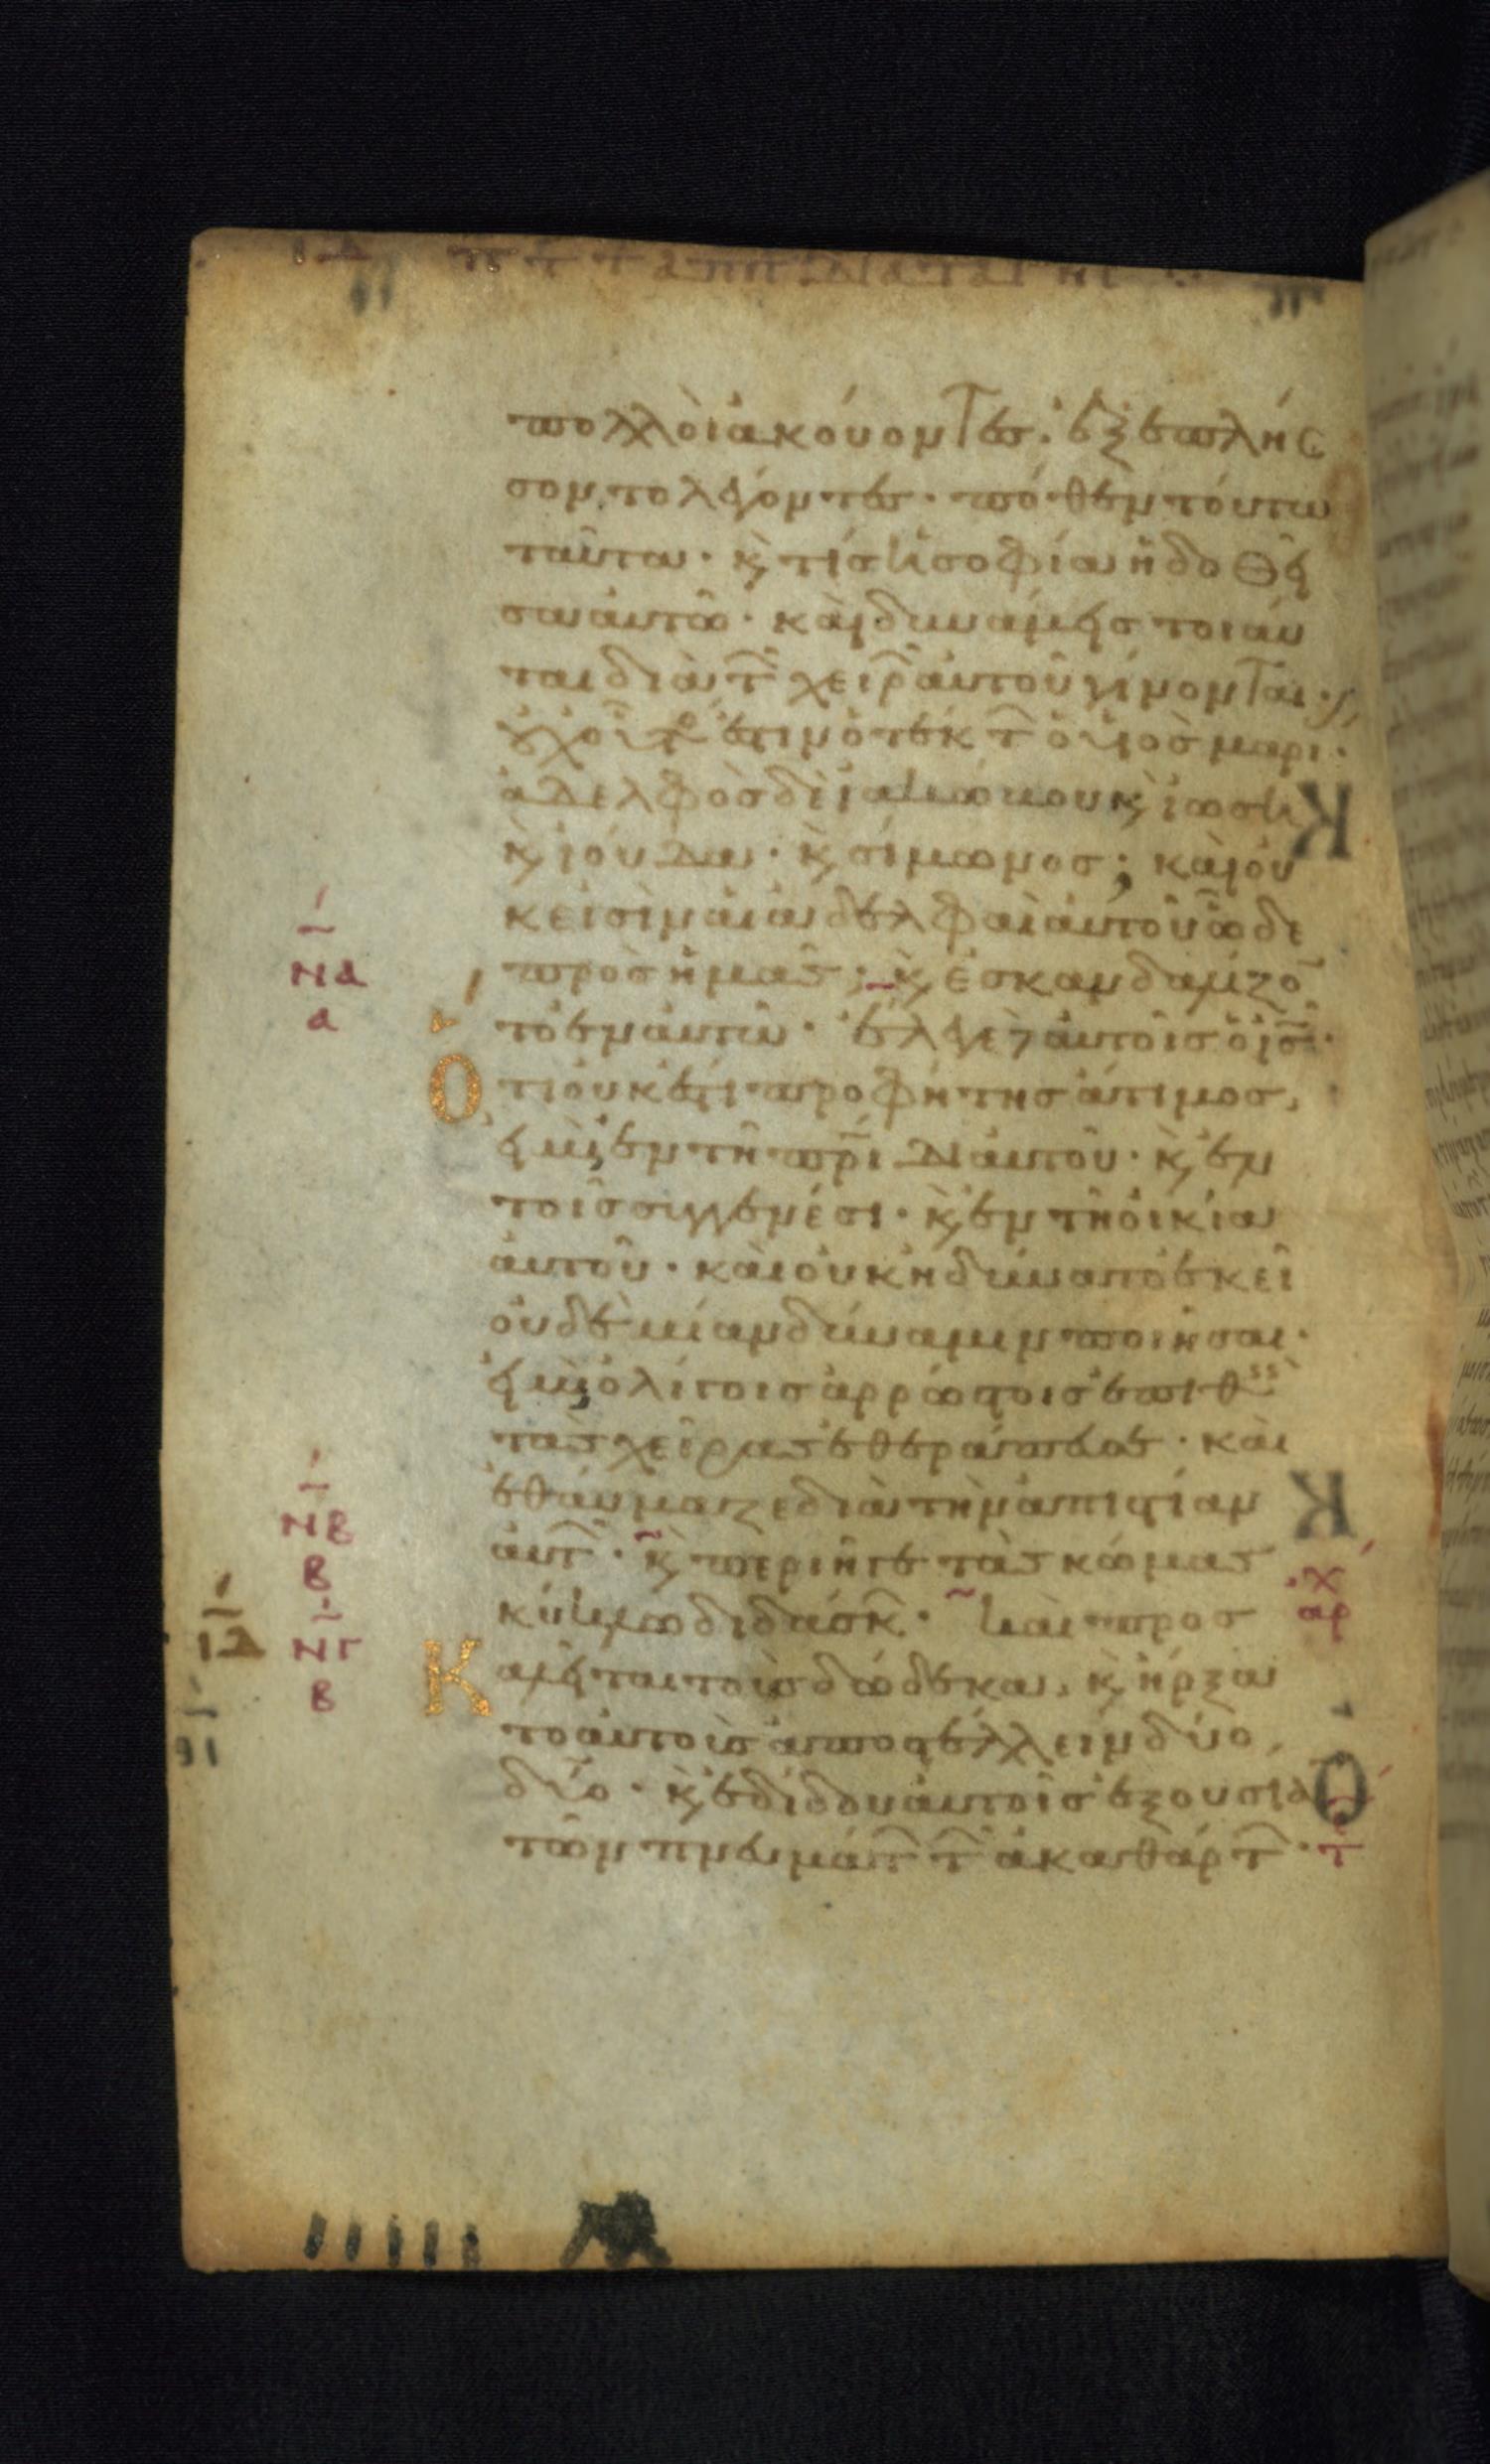 πολλοὶ ἀκούοντες· ἐξεπλήσ
σοντο λέγοντες· πόθεν τούτω
ταῦτα· κ τίς ἡ σοφία ἡ δοθεῖ
σα αὐτῶ· καὶ δυνάμεις τοιαύ
ται διὰ τ χειρ αὐτοῦ γίνονται·
ὐχ οὗτ ἐστιν ὁ τέκτ ὁ υἱὸς μαρι·
ἀδελφὸς δὲ ἰακώβου κ ἰωσῆ
κ ἰούδα· κ σίμωνος; καὶ οὐ
κ εἰσὶν αἱ ἀδελφαὶ αὐτοῦ ὧδε
πρὸς ἡμᾶς; κ ἐσκανδαλίζο
το ἐν αὐτῶ· ἔλεγε αὐτοῖς ὁ ις·
Ὅτι οὐκ ἔστι προφήτης ἄτιμος,
εἰ μὴ ἐν τῆ πρίδι αὐτοῦ· κ ἐν
τοῖς συγγενέσι· κ ἐν τῆ οἰκία
αὐτοῦ· καὶ οὐκ ἠδύνατο ἐκεῖ
οὐδὲ μίαν δύναμιν ποιῆσαι·
εἰ μὴ ὀλίγοις ἀρρώστοις ἐπιθ
τὰς χεῖρας ἐθεράπευσε· καὶ
ἐθαύμαζε διὰ τὴν ἀπιστίαν
αὐτ· κ περιῆγε τὰς κώμας
κύκλω διδάσκ· καὶ προς
Καλεῖται τοὺς δώδεκα, κ ἤρξα
το αὐτοὺς ἀποστέλλειν δύο,
δύο· κ ἐδίδου αὐτοῖς ἐξουσία
τῶν πνευμάτ τ ἀκαθάρτ·
ΝΑ
α
ΝΒ
Β
ΙΔ
ΝΓ
Β
αρ